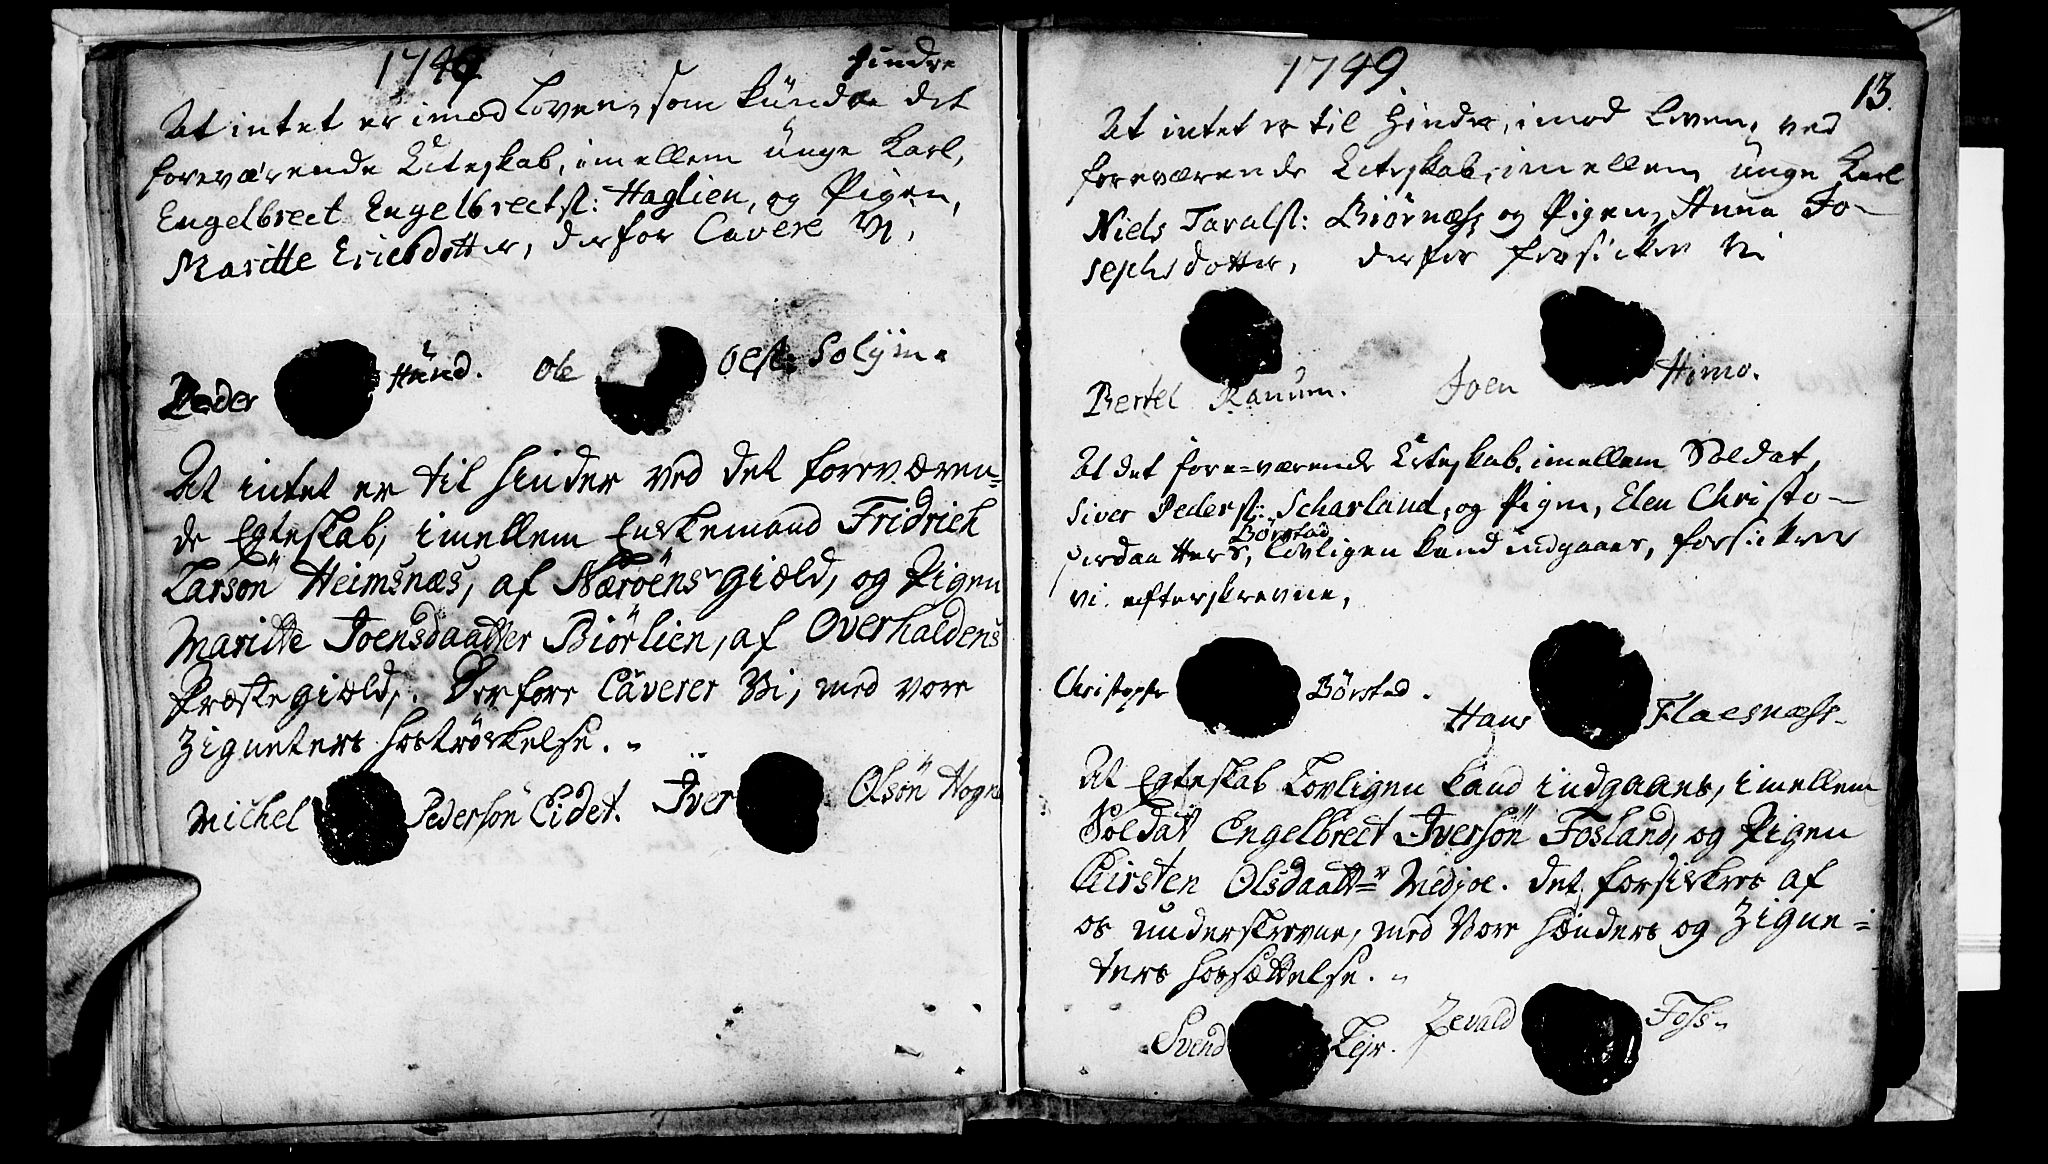 1749.
hindre
At intet er imod Loven, som kunde det
foreværende Ecteskab, imellem unge Karl,
Engelbrect Engelbrectst: Haglien, og Pigen,
Maritte Ericsdotter, derfor Cavere Vi,
Peder Hünd. Ole Oest: Solÿm.
At intet er til hinder ved det foreværen=
de Egteskab, imellem Enkemand Fridrich
Larsön Heimsnæs, af Næröens giæld, og Pigen
Maritte Joensdaatter Biörlien, af Overhaldens
Præstegiæld, Derfore Caverer Vi, med vore
Zigneters hoströkelse.
Michel Pedersön Eidet. Iver Olsön Hogn
1749.
13.
At intet er til hinder, imod Loven, ved
foreværende Ecteskab, imellem unge Karl
Niels Taralst: Biörnæss og Pigen, Anna Jo-
sephsdotter, derfor forsicker vi
Bertel Ranum. Joen Himo.
At det fore=værende Ecteskab, imellem Soldat,
Siver Pederst: Scharland, og Pigen, Elen Christo-
Börstad
pirdaatters, Lovligen kand indgaaes, forsickrer
vi efterskrevne,
Christopher Börstad. Hans Flaesnæss.
At Egteskab Lovligen kand indgaaes, imellem
Soldat Engelbrect Iversön Fosland, og Pigen
Kirsten Olsdaattr Medjoe. det forsickres af
os underskrevne, med Vore hænders og Zigne=
ters hossættelse.
Svend Lejr. Zevald Foss.